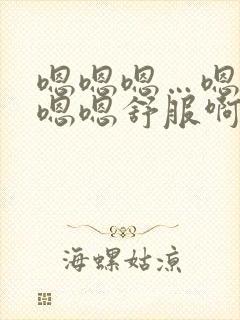 嗯嗯嗯…嗯
嗯嗯舒服啊
海螺姑凉